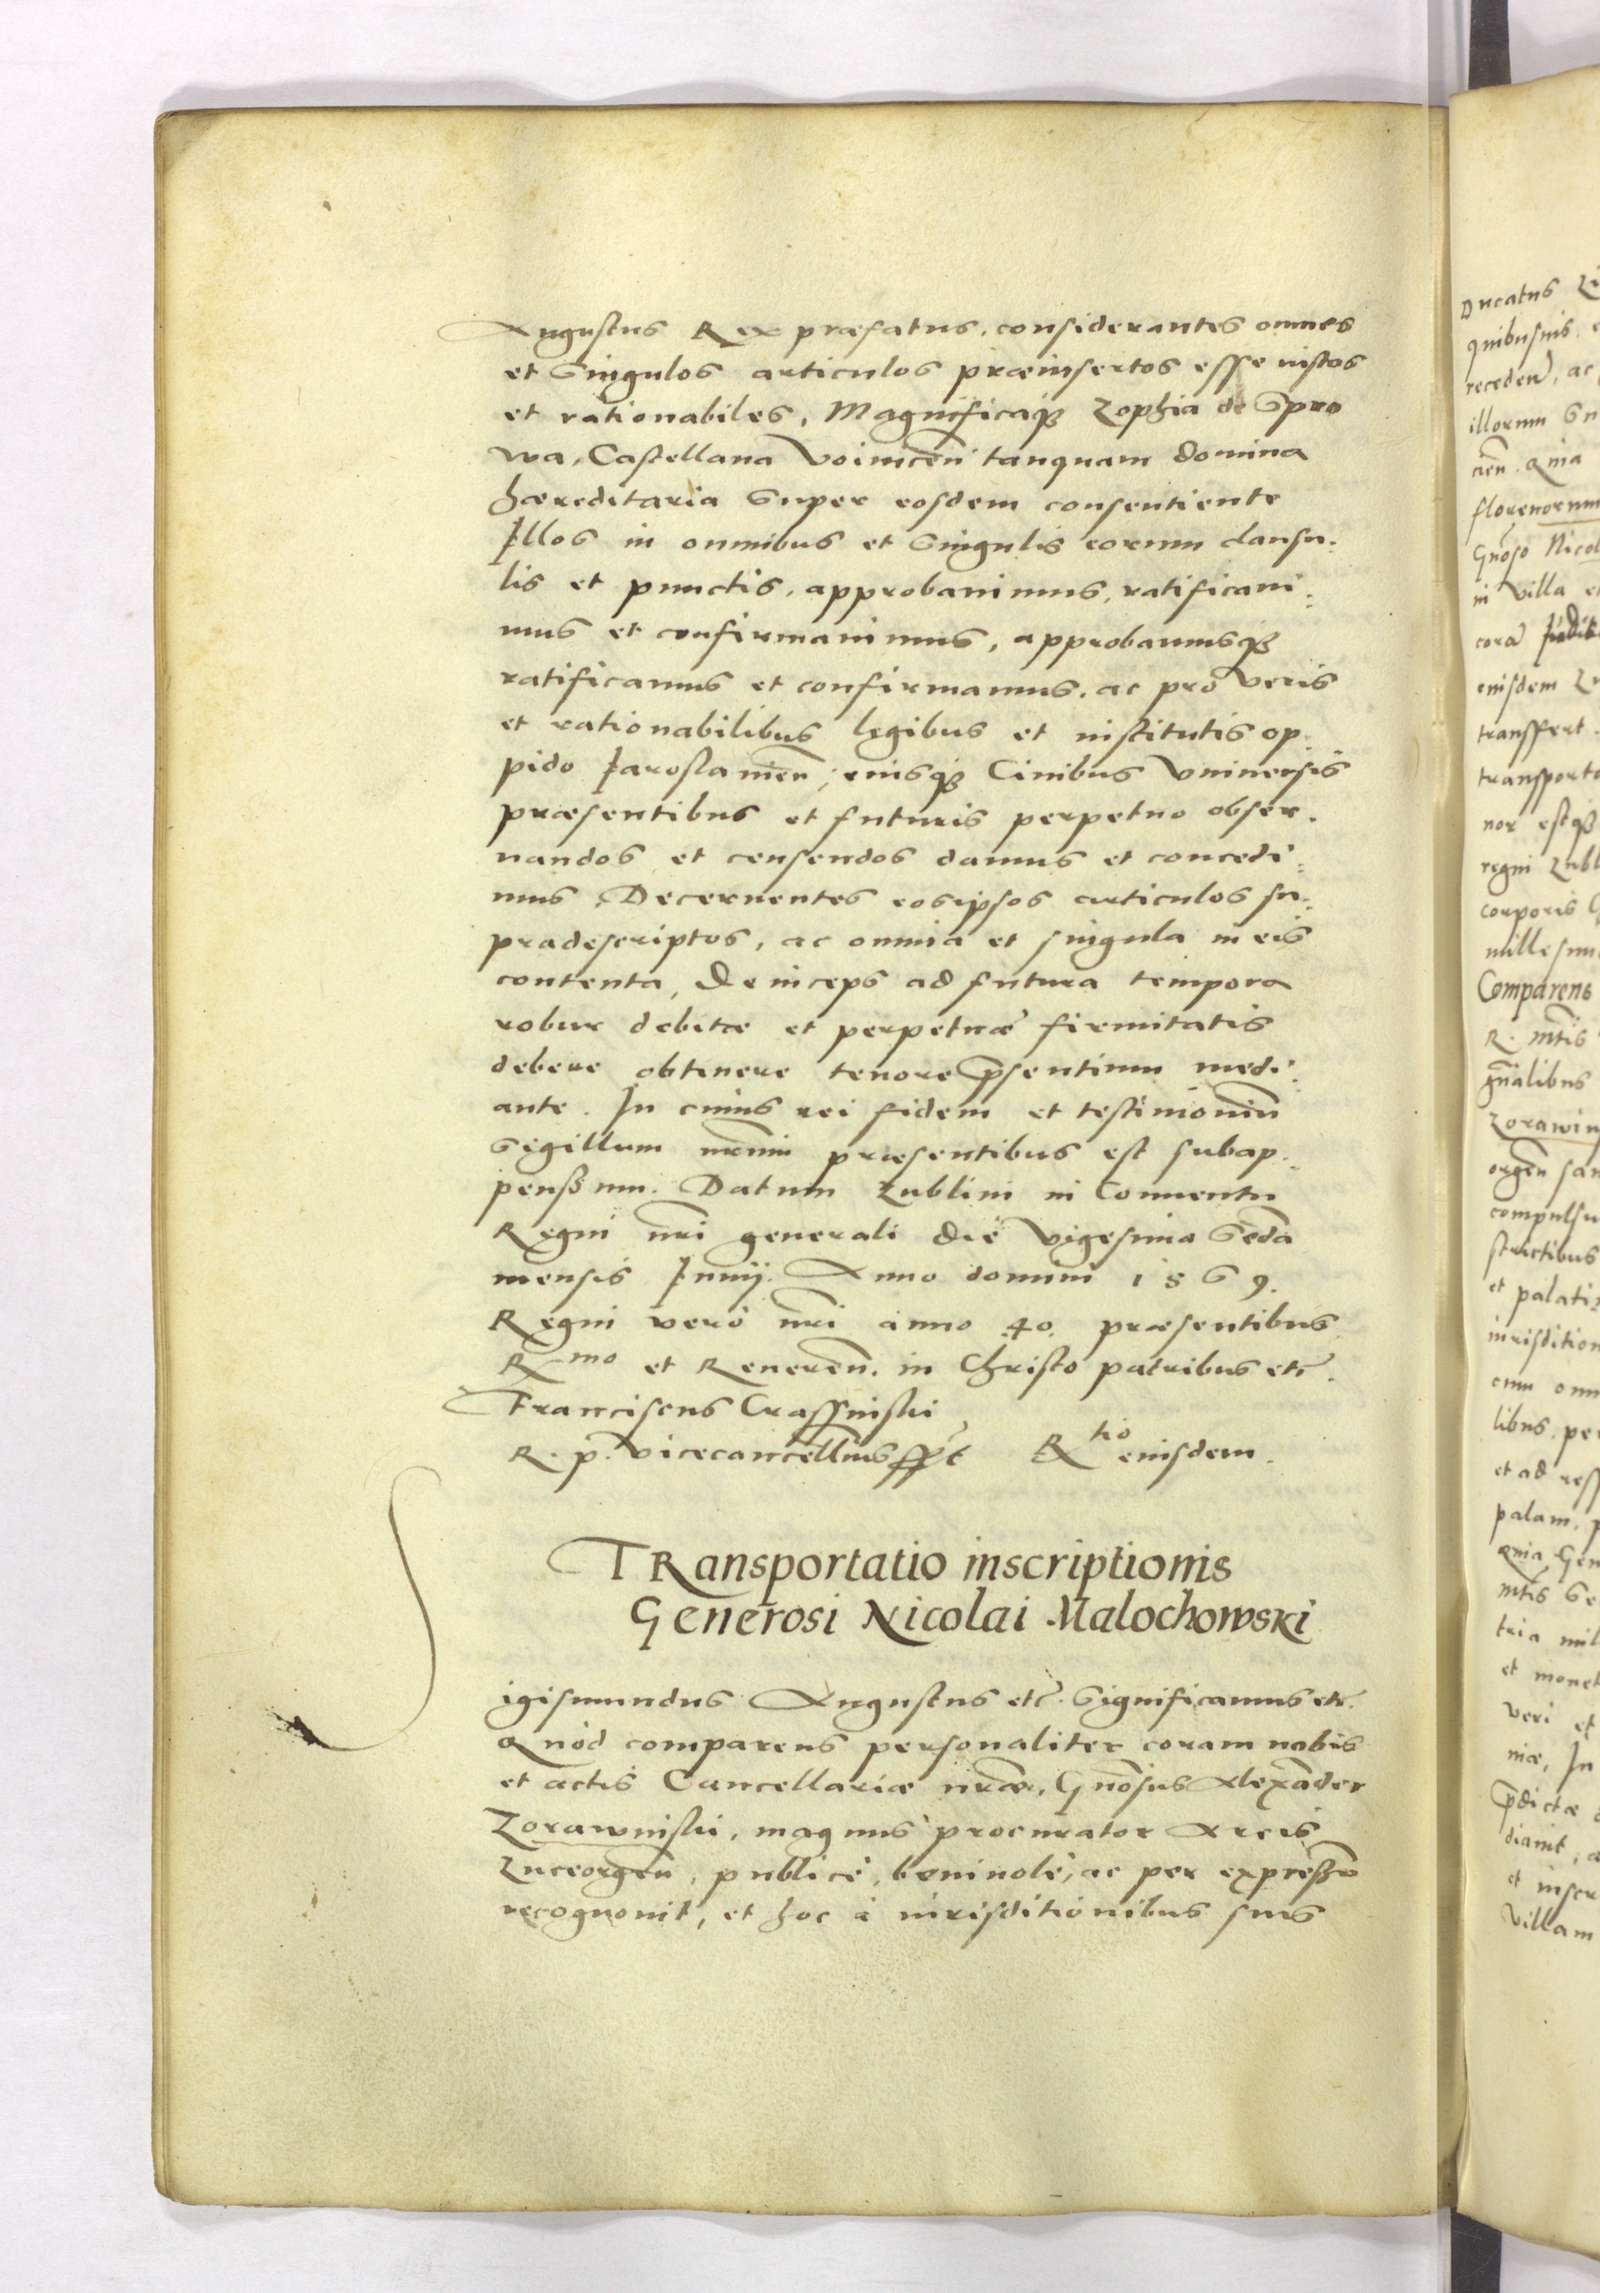 Augustus Rex præfatus, considerantes omnes
et singulos articulos præinsertos esse iustos
et rationabiles, Magnificaq₃ Zophia de Spro
wa, Castellana Voinicen̄ tanquam domina
hæreditaria super eosdem consentiente
Illos in omnibus et singulis eorum clausu-
lis et punctis, approbauimus, ratificaui-
mus et confirmauimus, approbamusq₃
ratificamus et confirmamus, ac pro veris
et rationabilibus legibus et institutis op-
pido Iaroslauien̄, eiusq₃ Ciuibus Vniuersis
præsentibus et futuris perpetuo obser-
uandos et censendos damus et concedi-
mus, Decernentes eosipsos articulos su-
pradescriptos, ac omnia et singula in eis
contenta, Deinceps ad futura tempora
robur debitæ et perpetuæ firmitatis
debere obtinere tenore p̄sentium medi-
ante. In cuius rei fidem et testimoniu̅
Sigillum nr̄um præsentibus est subap-
pensum. Datum Lublini in Conuentu
Regni nr̄i generali die Vigesima Secd̄a
mensis Iunij. Anno domini 1569.
Regni vero nr̄i anno 40. præsentibus
R^mo et Reueren̄. in Christo patribus etc̄.
Franciscus Crassinski
R. p. Vicecancellarius sspt R^tio eiusdem.
TRansportatio inscriptionis
Generosi Nicolai Malochowski
Sigismundus Augustus etc̄. Significamus etc̄.
Quòd comparens personaliter coram nobis
et actis Cancellariæ nr̄æ, Gn̄osus Alexāder
Zorawniski, magnus procurator Arcis
Luceorien̄, publicè, beniuolè, ac per expressum
recognouit, et hoc à iurisditionibus suis
Ducatus
quibusuis
receden̄, ac
illorum
cien̄. Quia
florenorum
Gn̄oso Nicol
in villa
corā
eiusdem
transffert
transport
nor estq₃
regni Lubl
corporis
millesimo
Comparens
R. Mt̄is
gn̄alibus
Zorawin
compulsu
strictibus
et palati
iurisdition
cum omn
libus, per
et ad ress
palam, p
Quia Gen
mt̄is Se
tria mil
et monet
veri et
niæ, In
p̄dictæ
et inscr
villam